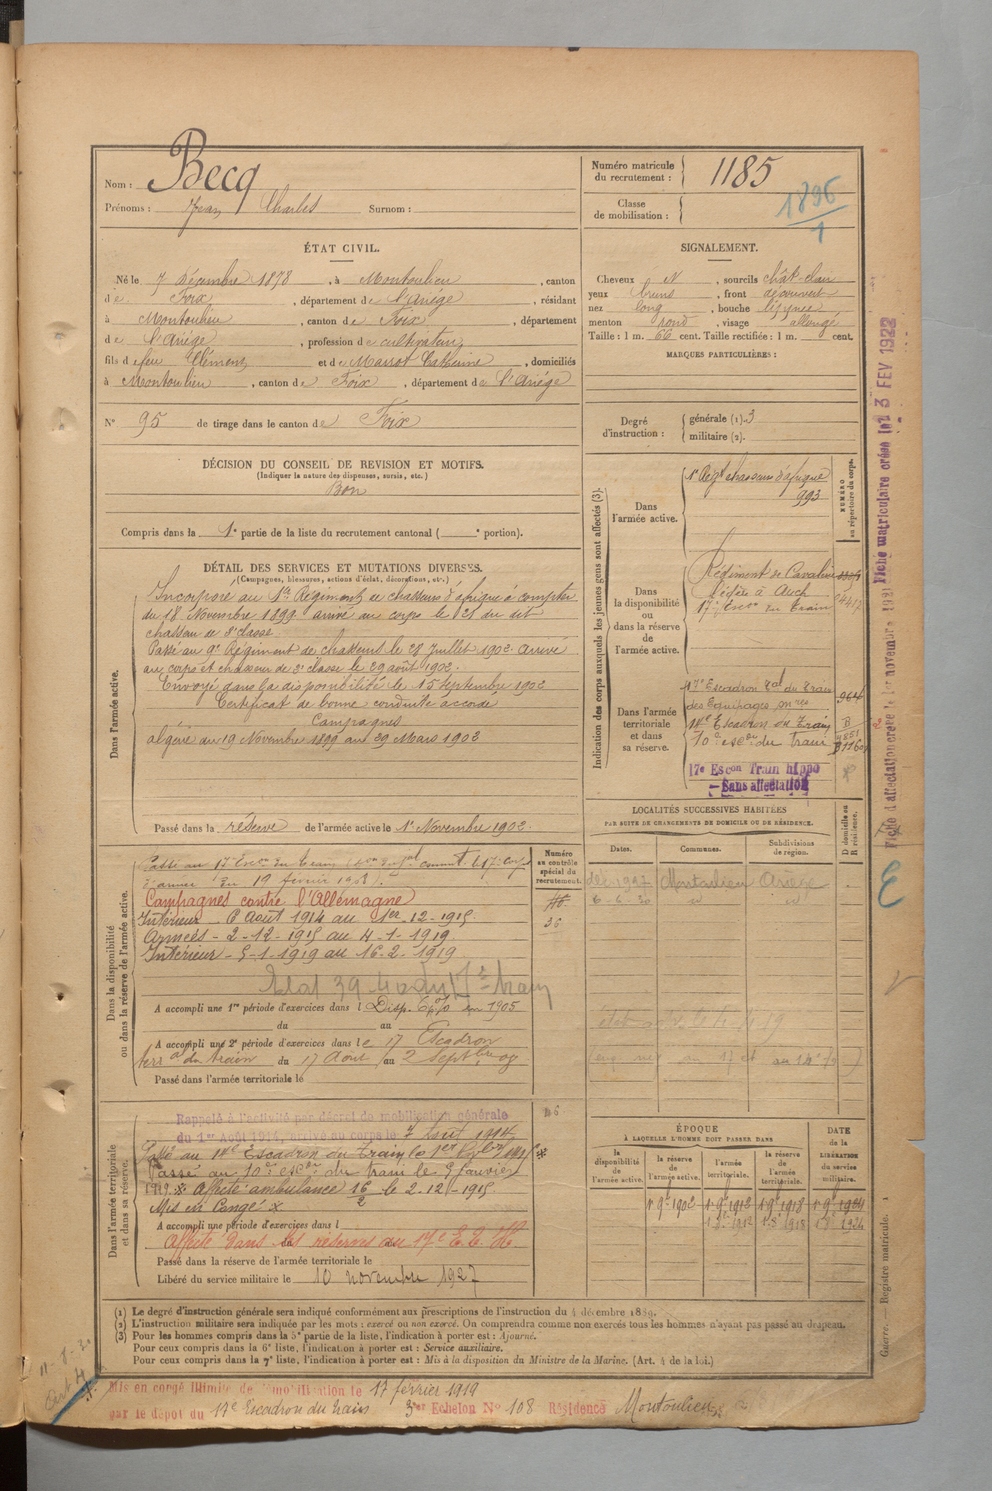 Nom : Becq
Prénoms : Jean Charles Surnom :
Numéro matricule du recrutement : 1185
Classe de mobilisation : 1896/1
ÉTAT CIVIL.
Né le 7 Décembre 1878, à Montoulieu, canton
de Foix, département de l'Ariège, résidant
à Montoulieu, canton de Foix, département
de l'Ariège, profession de cultivateur,
fils de feu Clément et de Marrot Catherine, domiciliés
à Montoulieu, canton de Foix, département de l'Ariège
N° 95 de tirage dans le canton de Foix
SIGNALEMENT.
Cheveux N, sourcils chât-clair
yeux bruns, front découvert
nez long, bouche
menton rond, visage allongé
Taille : 1 m. 66 cent. Taille rectifiée : 1 m. cent.
MARQUES PARTICULIÈRES :
Degré d'instruction : générale (1). 3
militaire (2).
DÉCISION DU CONSEIL DE REVISION ET MOTIFS.
(Indiquer la nature des dispenses, sursis, etc.)
Bon
Compris dans la 1e partie de la liste du recrutement cantonal ( e portion).
DÉTAIL DES SERVICES ET MUTATIONS DIVERSES.
(Campagnes, blessures, actions d'éclat, décorations, etc.)
Dans l'armée active.
Incorporé au 1er Régiment de chasseurs d'afrique à compter
du 18 Novembre 1899 arrivé au corps le 21 du dit
chasseur de 2e classe.
Passé au 9e Régiment de chasseurs le 28 Juillet 1902 arrivé
au corps et chasseur de 2e classe le 29 août 1902.
Envoyé dans la disponibilité le 15 Septembre 1902
Certificat de bonne conduite accordé
Campagnes
algérie du 19 Novembre 1899 au 29 Mars 1902
Passé dans la réserve de l'armée active le 1er Novembre 1902.
Indication des corps auxquels les jeunes gens sont affectés (3).
NUMÉRO au répertoire du corps.
Dans l'armée active.
1er Régt chasseurs d'afrique
993
Dans la disponibilité ou dans la réserve de l'armée active.
Régiment de Cavalerie
légère à Auch
17e Escon du Train
Dans l'armée territoriale et dans sa réserve.
17e Escadron Tal du Train
des Equipages mres
964
14e Escadron du Train
10e escon du train
17e Escon Train hippo
Sans affectation
Dans la disponibilité ou dans la réserve de l'armée active.
Numéro au contrôle spécial du recrutement.
Campagnes contre l'Allemagne
Intérieur 6 Août 1914 au 1er-12-1915
Armées - 2-12-1915 au 4-1-1919
Intérieur - 5-1-1919 au 16-2-1919
A accompli une 1re période d'exercices dans l Disp. en 1905
du au
A accompli une 2e période d'exercices dans le 17 Escadron
terral du train du 17 Aout au 2 Septbre 09
Passé dans l'armée territoriale le
LOCALITÉS SUCCESSIVES HABITÉES
PAR SUITE DE CHANGEMENTS DE DOMICILE OU DE RÉSIDENCE.
Dates. Communes. Subdivisions de région. D domicile ou R résidence.
déc 1927 Montoulieu Ariège
6-6-30 id id
Dans l'armée territoriale et dans sa réserve.
Rappelé à l'activité par décret de mobilisation générale
du 1er Août 1914, arrivé au corps le 7 Aout 1914
Passé au 14e Escadron du Train le 1er
Passé au 10e escon du train le 9 Janvier
1919. Affecté ambulance 16/2 le 2-12-1915
Mis en Congé
A accompli une période d'exercices dans l
Affecté dans les réserves au 17e E. T. H
Passé dans la réserve de l'armée territoriale le
Libéré du service militaire le 10 novembre 1927
ÉPOQUE
À LAQUELLE L'HOMME DOIT PASSER DANS
la disponibilité de l'armée active. la réserve de l'armée active. l'armée territoriale. la réserve de l'armée territoriale.
DATE de la LIBÉRATION du service militaire.
1 9e 1902 1 9e 1912 1 9e 1918 1 9e 1924
(1) Le degré d'instruction générale sera indiqué conformément aux prescriptions de l'instruction du 4 décembre 1889.
(2) L'instruction militaire sera indiquée par les mots : exercé ou non exercé. On comprendra comme non exercés tous les hommes n'ayant pas passé au drapeau.
(3) Pour les hommes compris dans la 5e partie de la liste, l'indication à porter est : Ajourné.
Pour ceux compris dans la 6e liste, l'indication à porter est : Service auxiliaire.
Pour ceux compris dans la 7e liste, l'indication à porter est : Mis à la disposition du Ministre de la Marine. (Art. 4 de la loi.)
Mis en congé illimité de démobilisation le 17 février 1919
par le dépôt du 17e Escadron du train 3e Echelon N° 108 Résidence Montoulieu
Fiche matriculaire créée le 3 FEV 1922
Fiche d'affectation créée le 1er novembre 1921
Guerre. — Registre matricule. 1